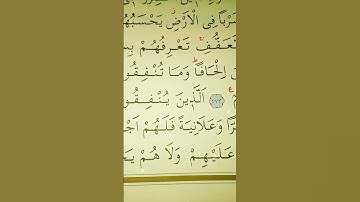 ضَرْبًا فِي الْاَرْضِ يَحْسَبُهُمُ
التَّعَفُّفِ تَعْرِفُهُمْ
اِلْحَافًا وَمَا تُنْفِقُوا
٢٧٣ اَلَّذِينَ يُنْفِقُونَ
وَعَلَانِيَةً فَلَهُمْ
عَلَيْهِمْ وَلَا هُمْ